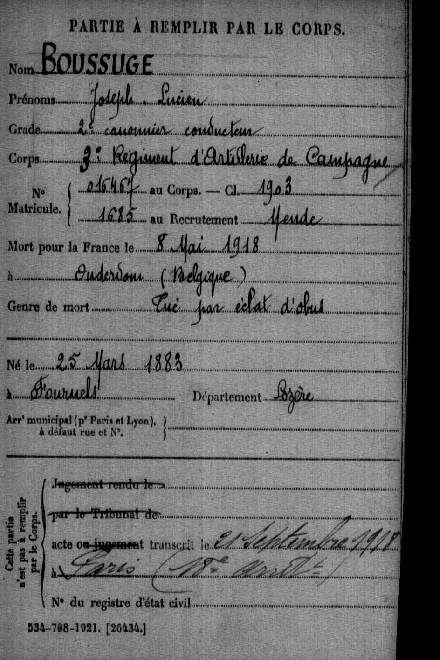 PARTIE À REMPLIR PAR LE CORPS.
Nom BOUSSUGE
Prénoms Joseph. Lucien
Grade 2e canonnier conducteur
Corps 3e Régiment d'Artillerie de Campagne
N° Matricule. { 016467 au Corps. — Cl. 1903
1685 au Recrutement Mende
Mort pour la France le 8 Mai 1918
à Ouderdom (Belgique)
Genre de mort Tué par éclat d'obus
Né le 25 Mars 1883
à Fournels Département Lozère
Arrt municipal (pr Paris et Lyon), à défaut rue et N°. }
Cette partie n'est pas à remplir par le Corps.
Jugement rendu le
par le Tribunal de
acte ou jugement transcrit le 21 Septembre 1918
à Paris (18e arrt)
N° du registre d'état civil
534-708-1921. [26434.]